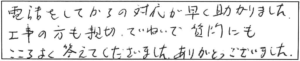 電話をしてからの対応が早く助かりました。
工事の方も親切、ていねいで質問にも
こころよく答えてくださいました。ありがとうございました。